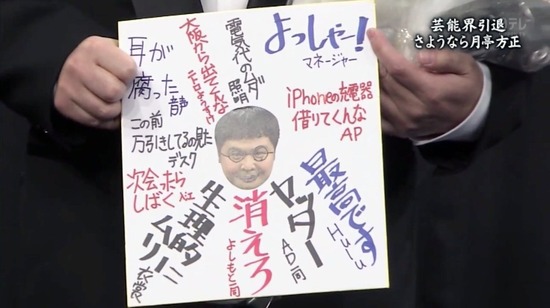 芸能界引退
さようなら月亭方正
よっしゃー!
マネージャー
電気代のムダ
照明
大阪から出てくんな
耳が
腐った
静
この前
万引きしてるの見た
デスク
次会ったら
しばく
iPhoneの充電器
借りてくんな
AP
最高です
Hulu
ヤッター
AD一同
消えろ
よしもと一同
生理的に
ムリー
衣裳